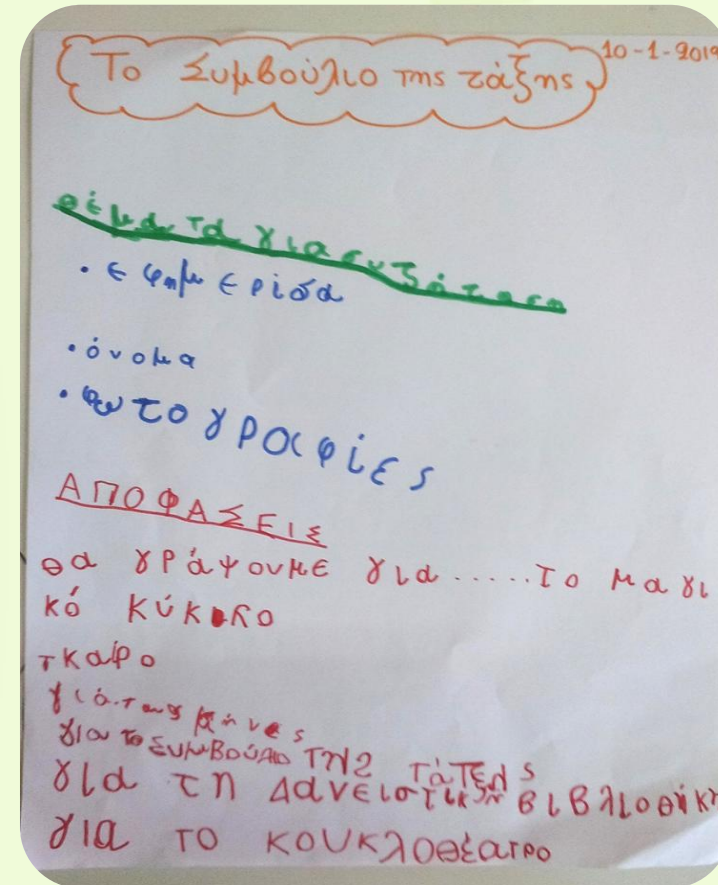 Το Συμβούλιο της τάξης
10-1-2019
θέματα για συζήτηση
• εφημερίδα
• όνομα
• φωτογραφίες
ΑΠΟΦΑΣΕΙΣ
θα γράψουμε για.....το μαγι
κό κύκλο
τκαίρο
για τους μήνες
για το ΣυμΒούλιο της τάξης
για τη Δανειστική βιβλιοθήκη
για το κουκλοθέατρο